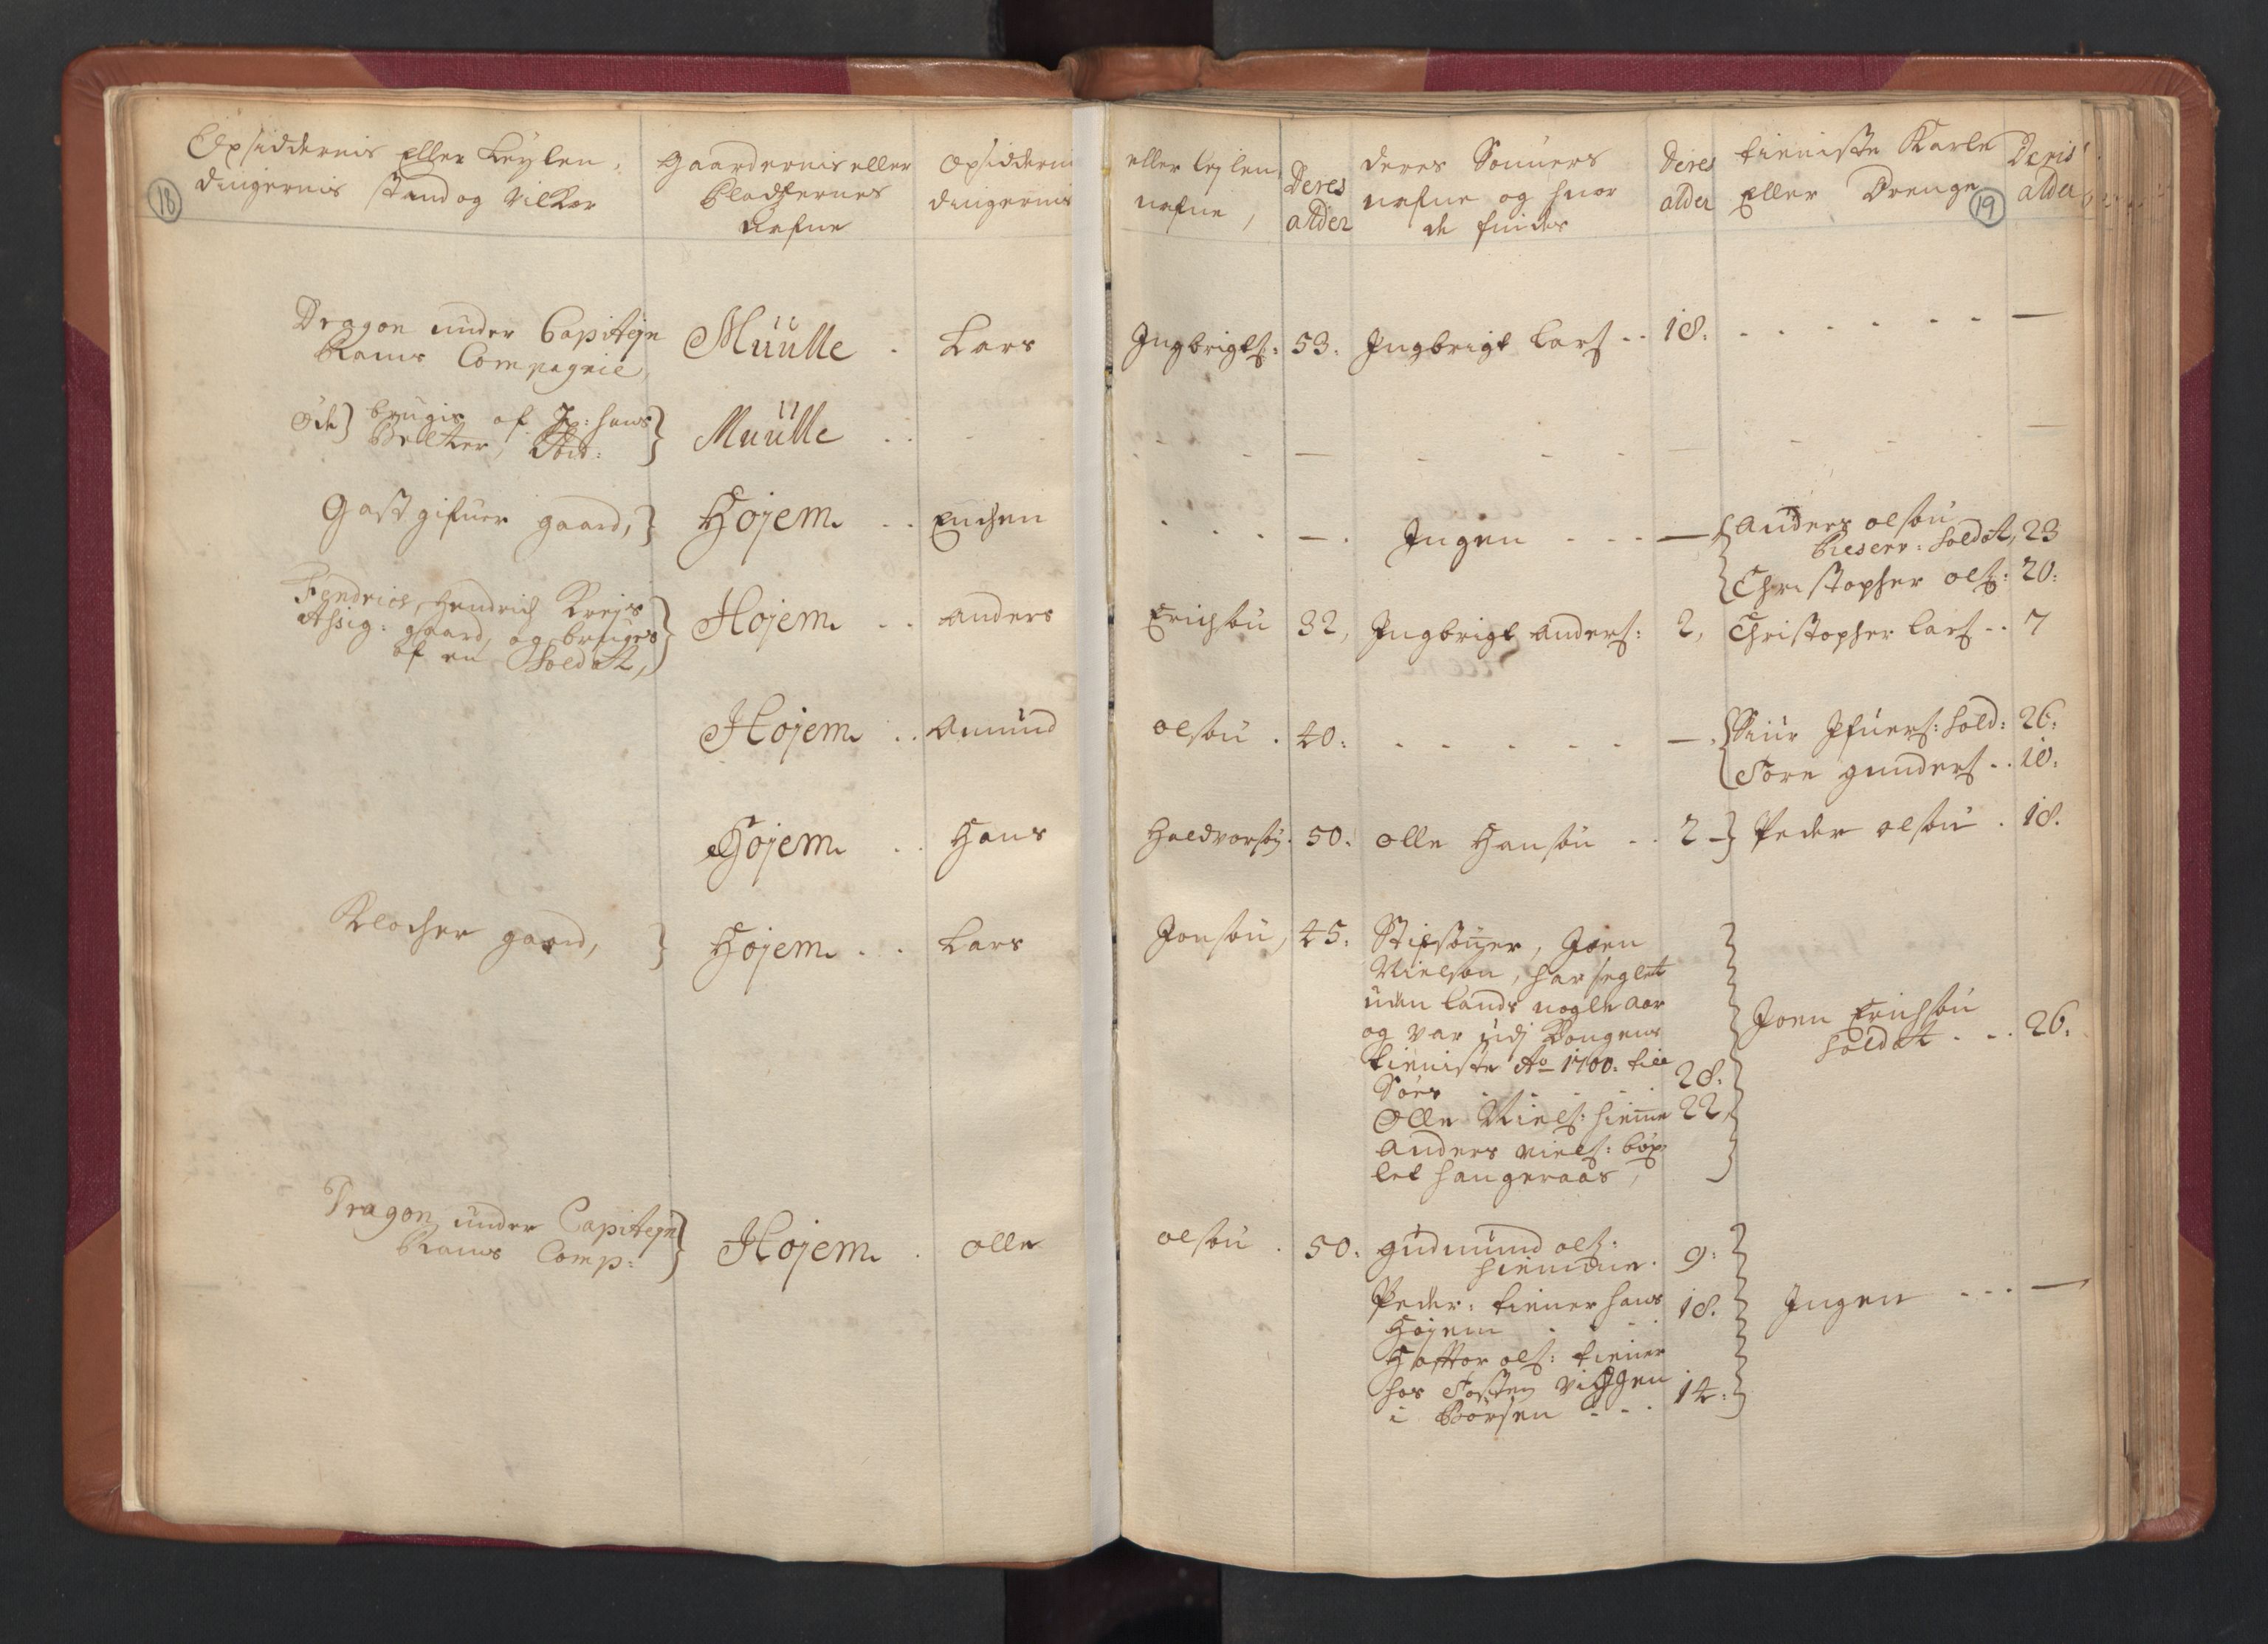 18
Opsiddernis eller Leylen,
dingernis Stand og Vilkor
Gaardernis eller
Pladzernes
Nafne
Opsidderni
dingernis
eller leylen
nafne,
Deres
alder
deres Sønners
nafne og huor
de findes
Deres
alder
tieniste Karle
eller Drenge
19
Deris
alder
Dragon under Capiteyn
Rams Compagnie,
Muülle . Lars
Ingbrigts: 53. Ingbrigt Lars .. 18. . . . . . . —
Øde} brugis af Hans
Muülle . .
Gastgifuer gaard,} Højem . . Enchen
. . . — . Ingen . . . —
Anders olsøn
Reserv: Soldat, 23
Christopher ols: 20:
Fendrich, Hendrich Kreys
Assig: gaard, og bruges
af en Soldat,
Højem . . Anders
Erichsøn 32, Ingbrigt Anders: 2, Christopher Lars .. 7
Højem . . Amund
olsøn . 40: . . . . . . — .
Siur Ifuers: Sold: 26:
Tore gunders .. 18:
Højem . . Hans
Haldvorsøn. 50. olle Hansøn . . 2 —} Peder olsøn . 18.
Klocher gaard, } Højem . . . Lars
Jonsøn, 45: Stifsønner, Joen
Nielsøn, har seglet
uden lands nogle aar
og var udj Kongens
tieniste Ao 1700: till
Søes . . . . 28:
Olle Niels: hieme 22,
Anders Niels: bøx
let Haugeraas,
Joen Erichsøn
Soldat . . . 26:
Dragon under Capiteyn
Rams Comp: } Højem . olle
olsøn . 50: Gudmund ols:
hiemme. 9:
Peder: tiener hans
Højem . . . 18.
Hafftor ols: tiener
hos Tosten Viggen
i Børsen . . . 14:
Ingen . . . —